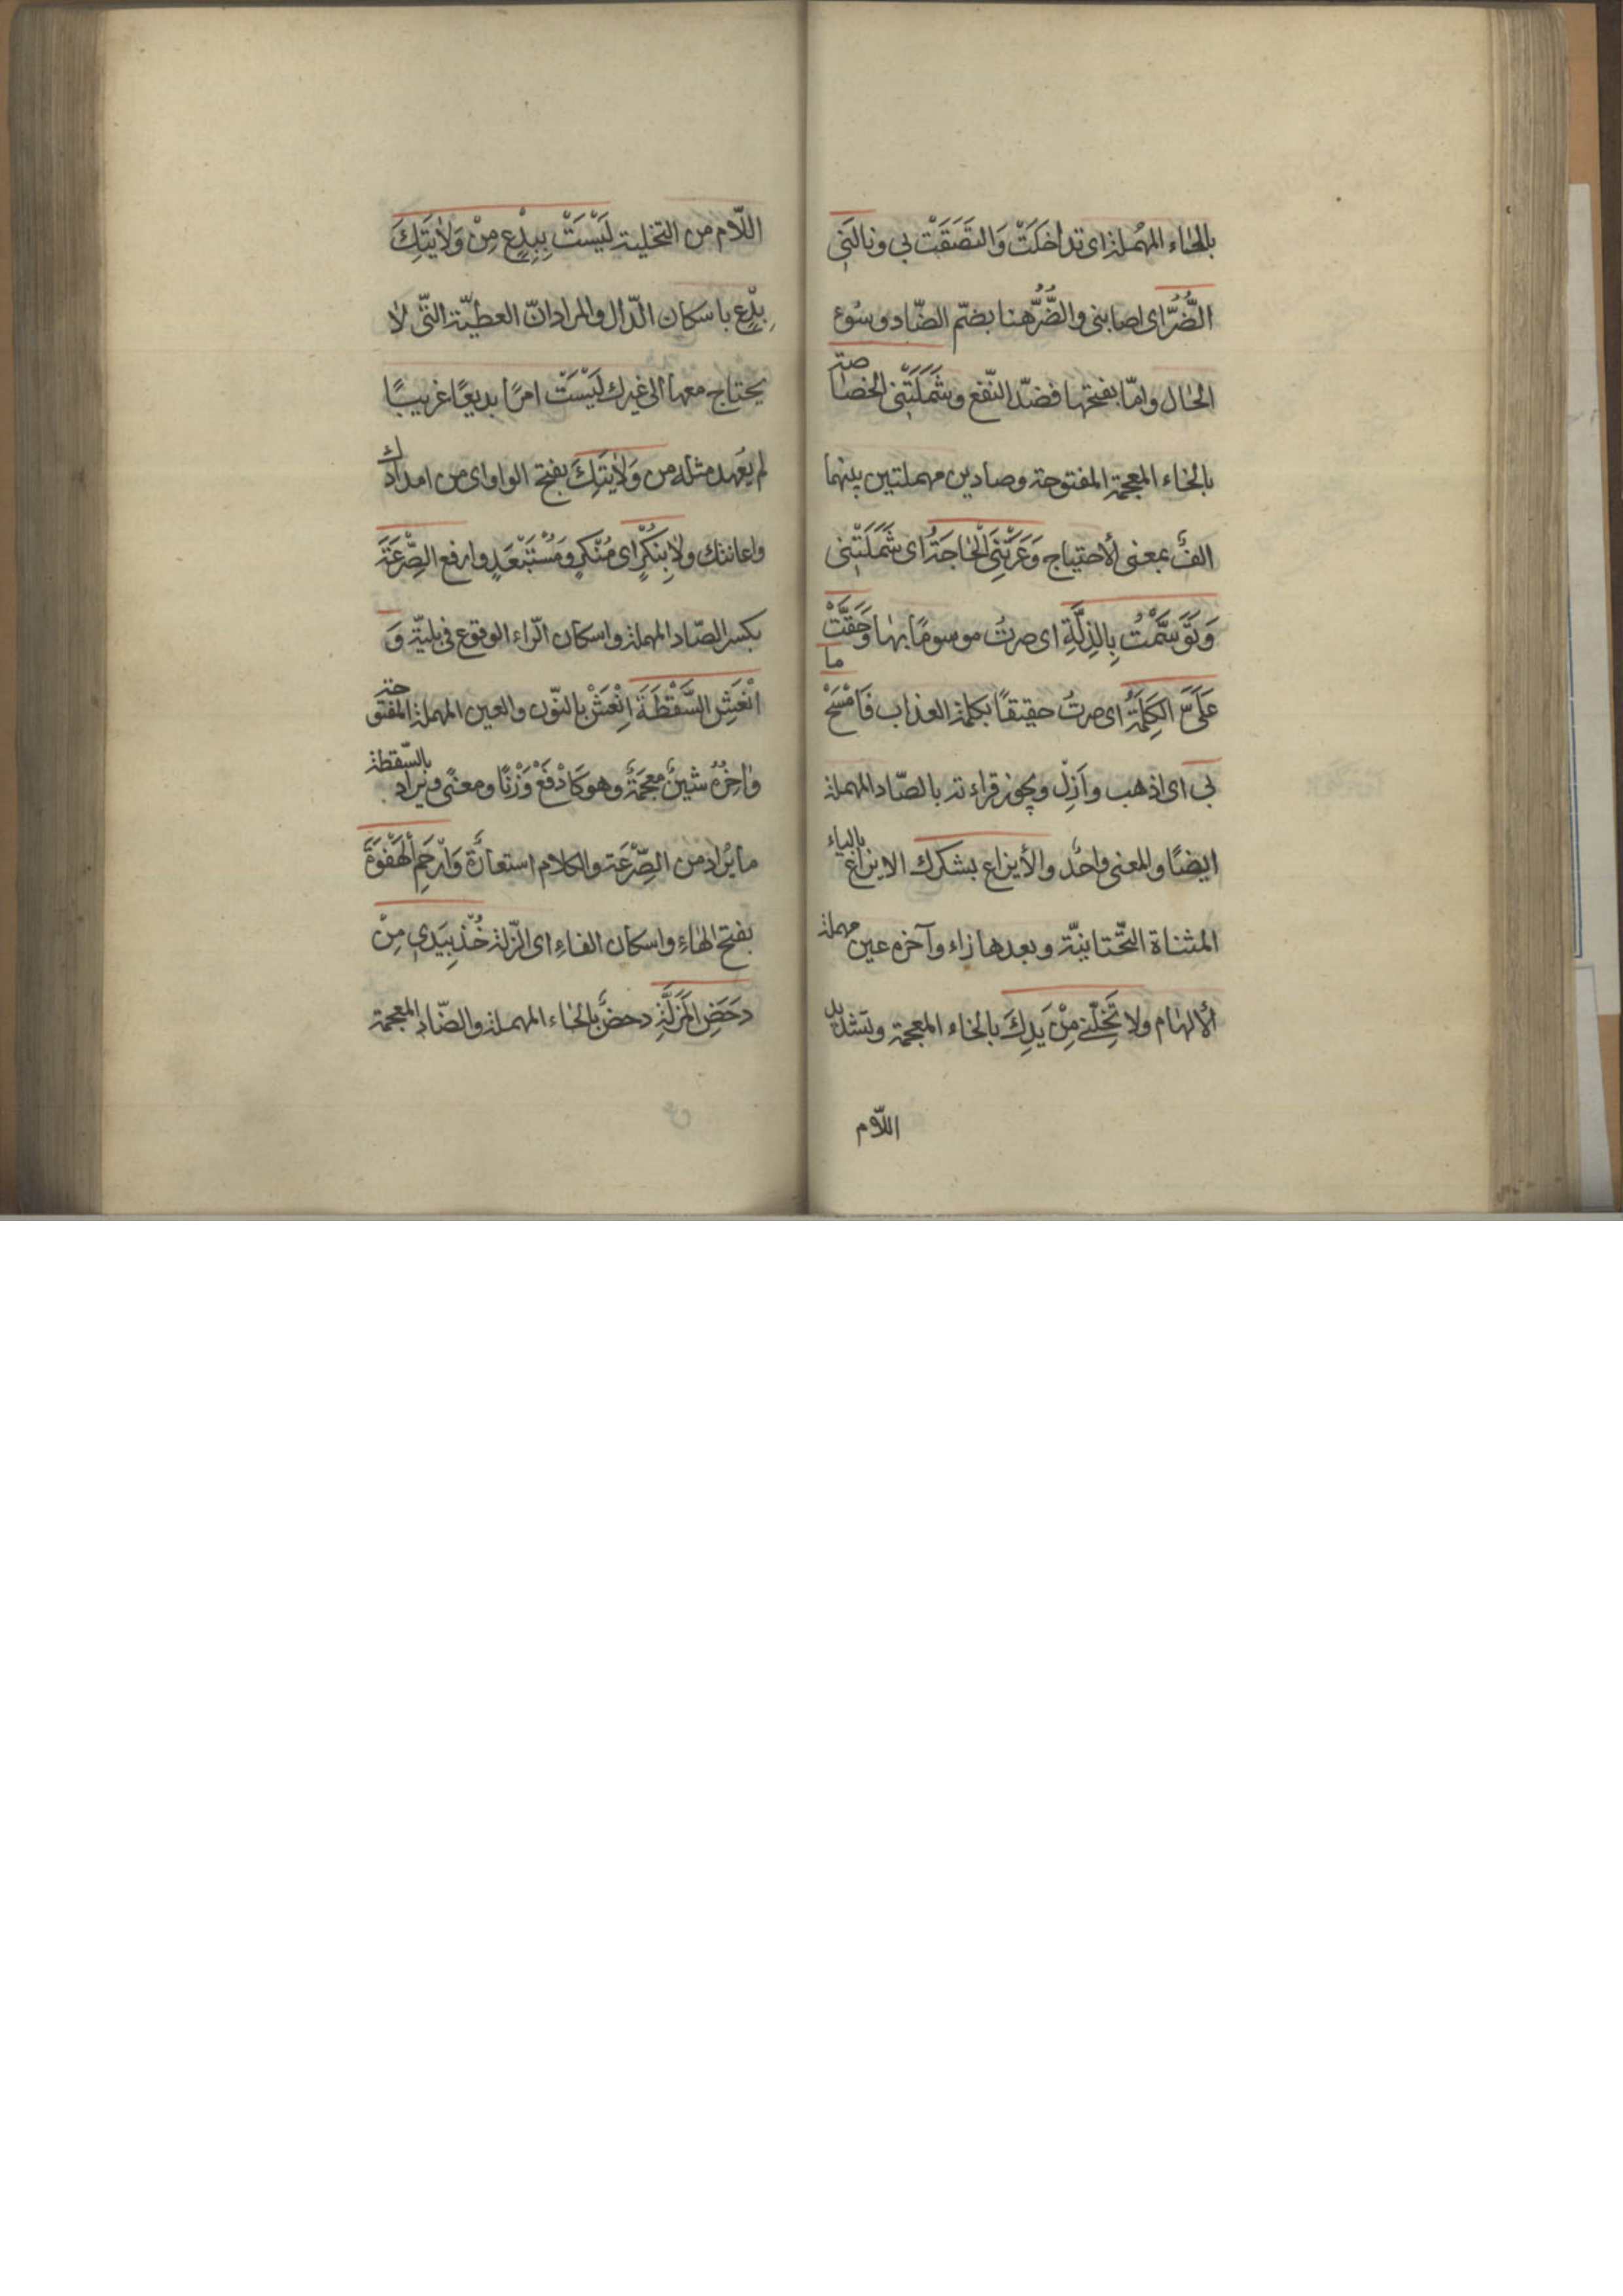 بالحاء المهملة اى تداخلَتْ وَالتَصَقَتْ بى ونالَنِى
الضُّرُّ اى اصابنى والضُّرُّ هنا بضمّ الضّاد وسُوء
الحال وامّا بفتحها فضدّ النّفع وشَمَلَتْنِى الخصاصة
بالخاء المعجمة المفتوحة وصادين مهملتين بينهما
الفٌ بمعنى الأحتياج وَعَرَتْنِىَ الْحاجَةُ اى شَمَلَتْنِى
وَتَوَسَّمْتُ بِالذِلَّةِ اى صرتُ موسومًا بها وَحَقَّتْ
عَلَىَّ الكَلِمَةُ اى صرتُ حقيقًا بكلمة العذاب فَامْسَحْ ما
بى اى اذهب وأَزِلْ ويجوز قراءته بالصّاد المهملة
ايضًا والمعنى واحدٌ والأيزاع بشكرك الايزاع بالياء
المثناة التّحتانيّة وبعدها زاء وآخره عين مهملة
الألهام ولا تُخَلِّنى مِنْ يَدِكَ بالخاء المعجمة وتشديد
اللّام
اللّام من التخلية لَيْسَتْ بِبِدْعٍ مِنْ وَلايَتِكَ
بِدْعٍ باسكان الدّال والمراد انّ العطيّة التّى لا
يحتاج معها الى غيرك لَيْسَتْ امرًا بديعًا غريبًا
لم يعهد مثله من وَلايَتِكَ بفتح الواو اى من امدادك
واعانتك ولا بِنَكِرٍ اى مُنْكَرٍ ومُسْتَبْعَدٍ وارفع الصِّرْعَةَ
بكسر الصّاد المهملة واسكان الرّاء الوقوع فى بليّة وَ
انْعَشِ السَّقْطَةَ اِنْعَشْ بالنّون والعين المهملة المفتوحة
واخِرُهُ شينٌ معجمَةٌ وهو كَادْفَعْ وَزْنًا ومعنًى ويراد بالسّقطة
ما يُرادُ من الصِّرْعَة والكلام استعارَة وَارْحَمِ الْهَفْوَةَ
بفتح الهاءِ واسكان الفاءِ اى الزّلة خُذْ بِيَدِى مِنْ
دَحَضِ الْمَزَلَّةِ دحضٌ بالحاء المهملة والضّاد المعجمة